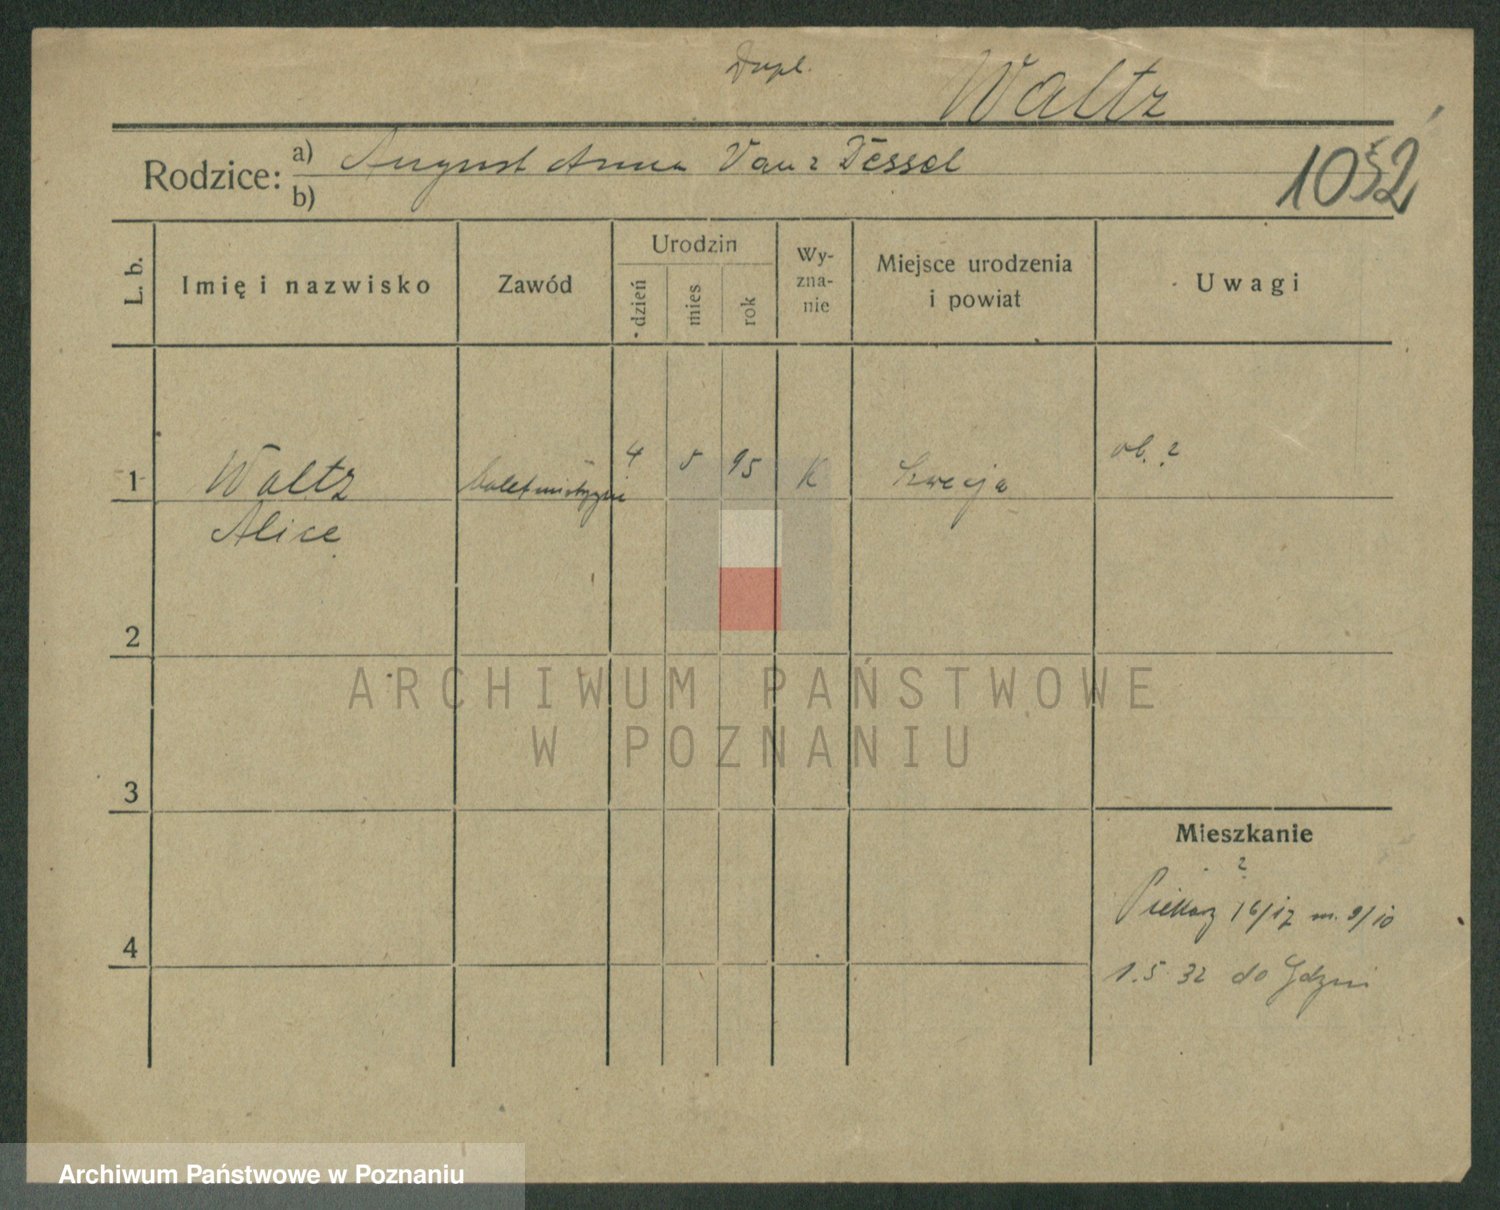 Dupl.
Waltz
Rodzice: a) August Anna
b)
1032
L. b.
Imię i nazwisko
Zawód
Urodzin
dzień
mies
rok
Wy-
zna-
nie
Miejsce urodzenia
i powiat
Uwagi
1 Waltz 4 5 95 K Szwecja ob. ?
Alice
2
3
4
Mieszkanie
?
Piekary 16/17 m. 9/10
1. 5 32 do Gdyni
ARCHIWUM PAŃSTWOWE
W POZNANIU
Archiwum Państwowe w Poznaniu